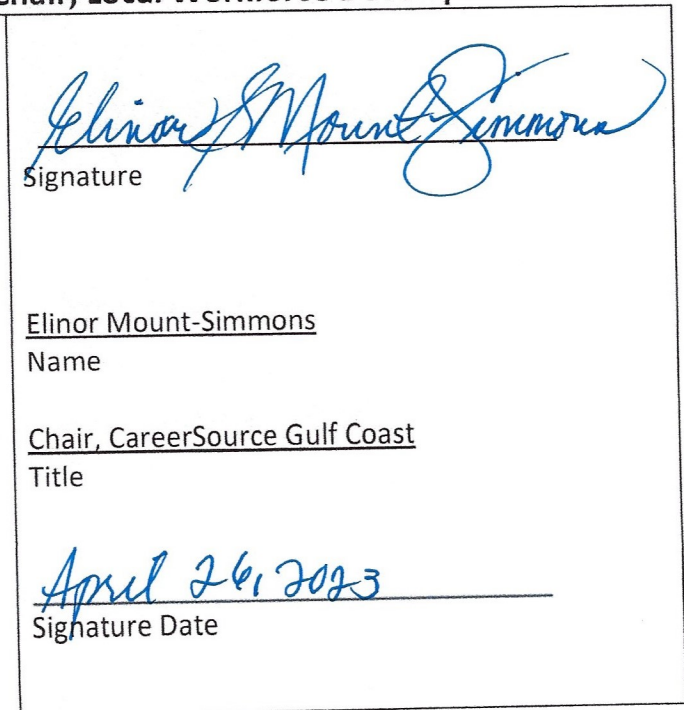 Chair, Local Workforce
Elinor S Mount-Simmons
Signature
Elinor Mount-Simmons
Name
Chair, CareerSource Gulf Coast
Title
April 26, 2023
Signature Date